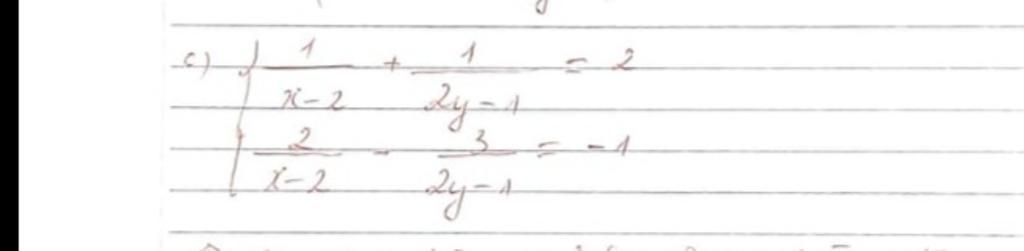 c) { 1/(x-2) + 1/(2y-1) = 2
2/(x-2) - 3/(2y-1) = -1